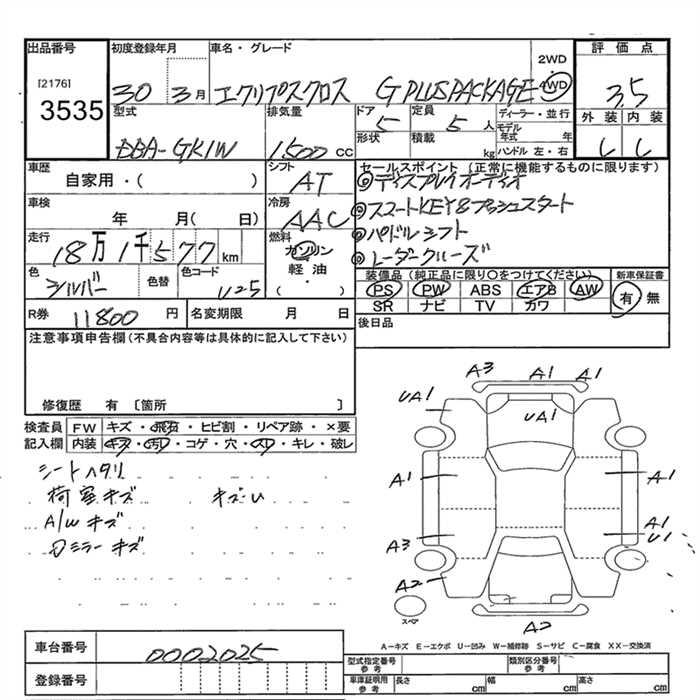 出品番号 初度登録年月 車名・グレード 2WD 評価点
[2176] 3535 30年 3月 エクリプスクロス G PLUS PACKAGE 4WD 3.5
型式 排気量 ドア 定員 ディーラー・並行 外装 内装
DBA-GK1W 1500cc 5 5人 モデル年式 年
形状 積載 kg ハンドル 左・右
車歴 シフト セールスポイント (正常に機能するものに限ります)
自家用・( ) AT ◎ディスプレイオーディオ
車検 冷房 ◎スマートKEY&プッシュスタート
年 月( 日) AAC ◎パドルシフト
走行 燃料 ◎レーダークルーズ
18万1千577km ガソリン
軽油
・( )
色 色替 色コード 装備品(純正品に限り○をつけてください) 新車保証書
シルバー U25 PS PW ABS エアB AW 有 無
SR ナビ TV カワ
R券 11800円 名変期限 月 日 後日品
注意事項申告欄(不具合内容等は具体的に記入して下さい)
修復歴 有 〔箇所 〕
検査員 FW キズ・飛石・ヒビ割・リペア跡・×要
記入欄 内装 キズ・汚レ・コゲ・穴・スレ・キレ・破レ
シートヘタリ
荷室キズ
A/Wキズ
Dミラーキズ
A3 A1 A1
UA1 UA1
A1 A1
A3 A1
U1
A2
スペア
A2
A-キズ E-エクボ U-凹み W-補修跡 S-サビ C-腐食 XX-交換済
車台番号 0002025
型式指定番号 参考 類別区分番号 参考
登録番号 車庫証明用 参考 長さ cm 幅 cm 高さ cm